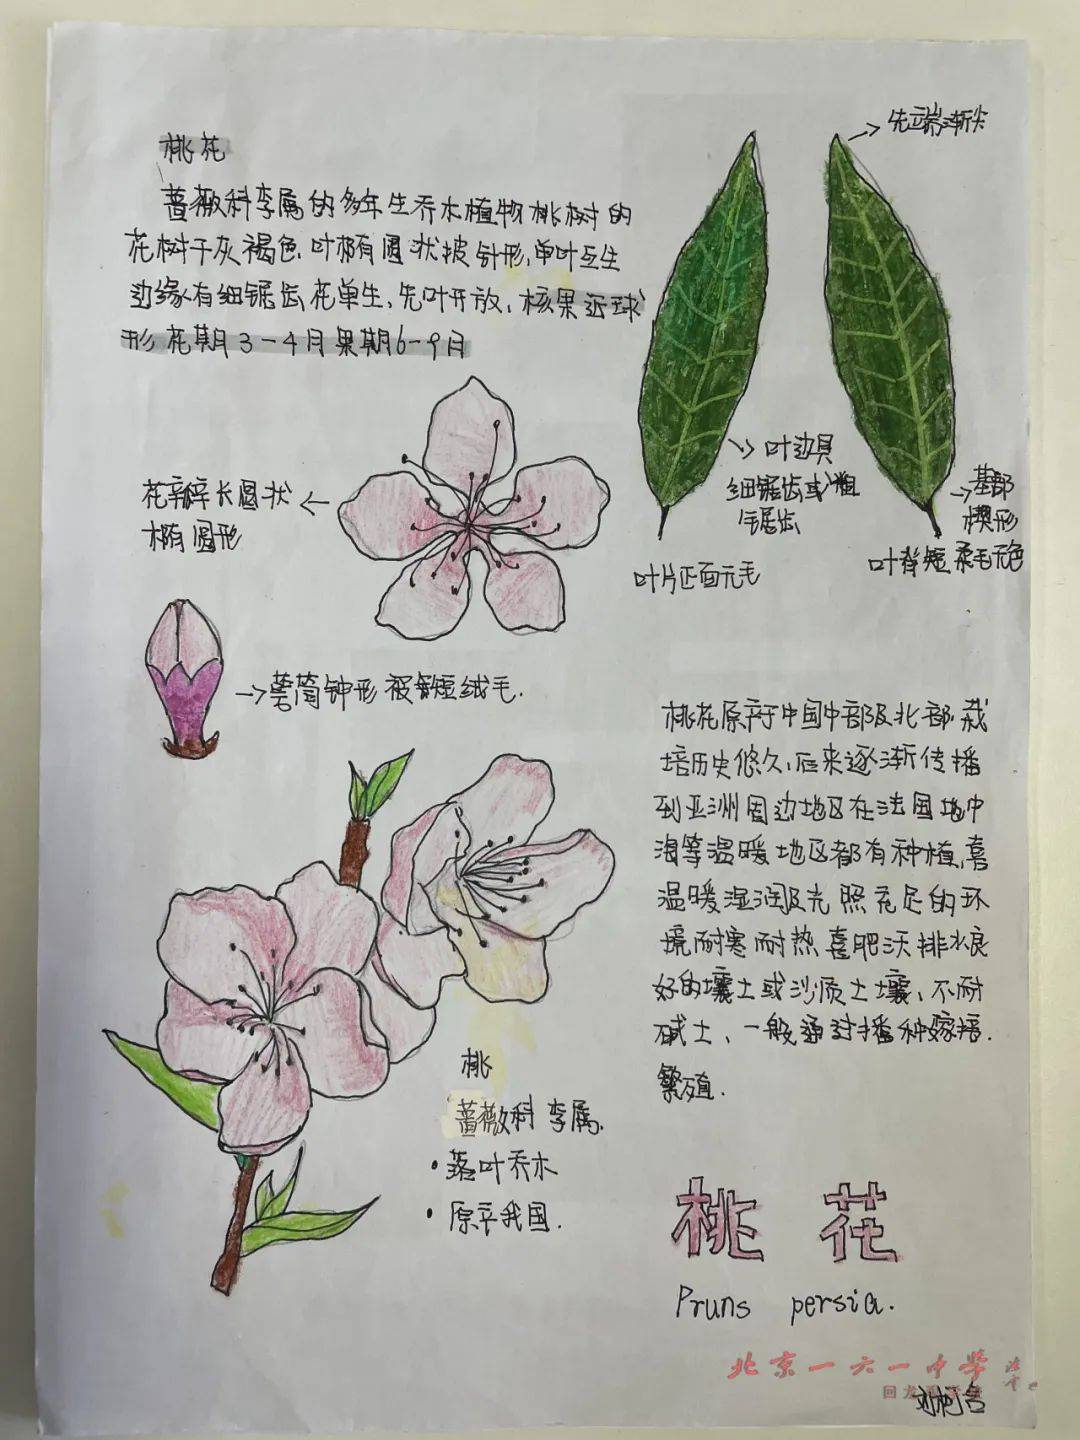 桃花
蔷薇科李属的多年生乔木植物桃树的
花树干灰褐色.叶椭圆状披针形,单叶互生
边缘有细锯齿,花单生、先叶开放、核果近球
形 花期3-4月果期6-9月
先端渐尖
叶边具
细锯齿或粗
锯齿
基部
楔形
叶片正面无毛
叶背短柔毛无色
花瓣长圆状
椭圆形
萼筒钟形 被短绒毛.
桃花原产于中国中部及北部.栽
培历史悠久,后来逐渐传播
到亚洲周边地区在法国地中
海等温暖地区都有种植,喜
温暖湿润及光照充足的环
境耐寒耐热喜肥沃排水良
好的壤土或沙质土壤、不耐
碱土、一般通过播种嫁接.
繁殖.
桃
蔷薇科李属.
•落叶乔木
•原产我国.
桃花
Pruns persia.
北京一六一中学